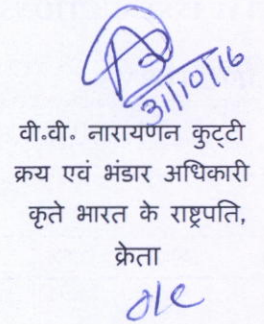 31/10/16
वी॰वी॰ नारायणन कुट्टी
क्रय एवं भंडार अधिकारी
कृते भारत के राष्ट्रपति,
क्रेता